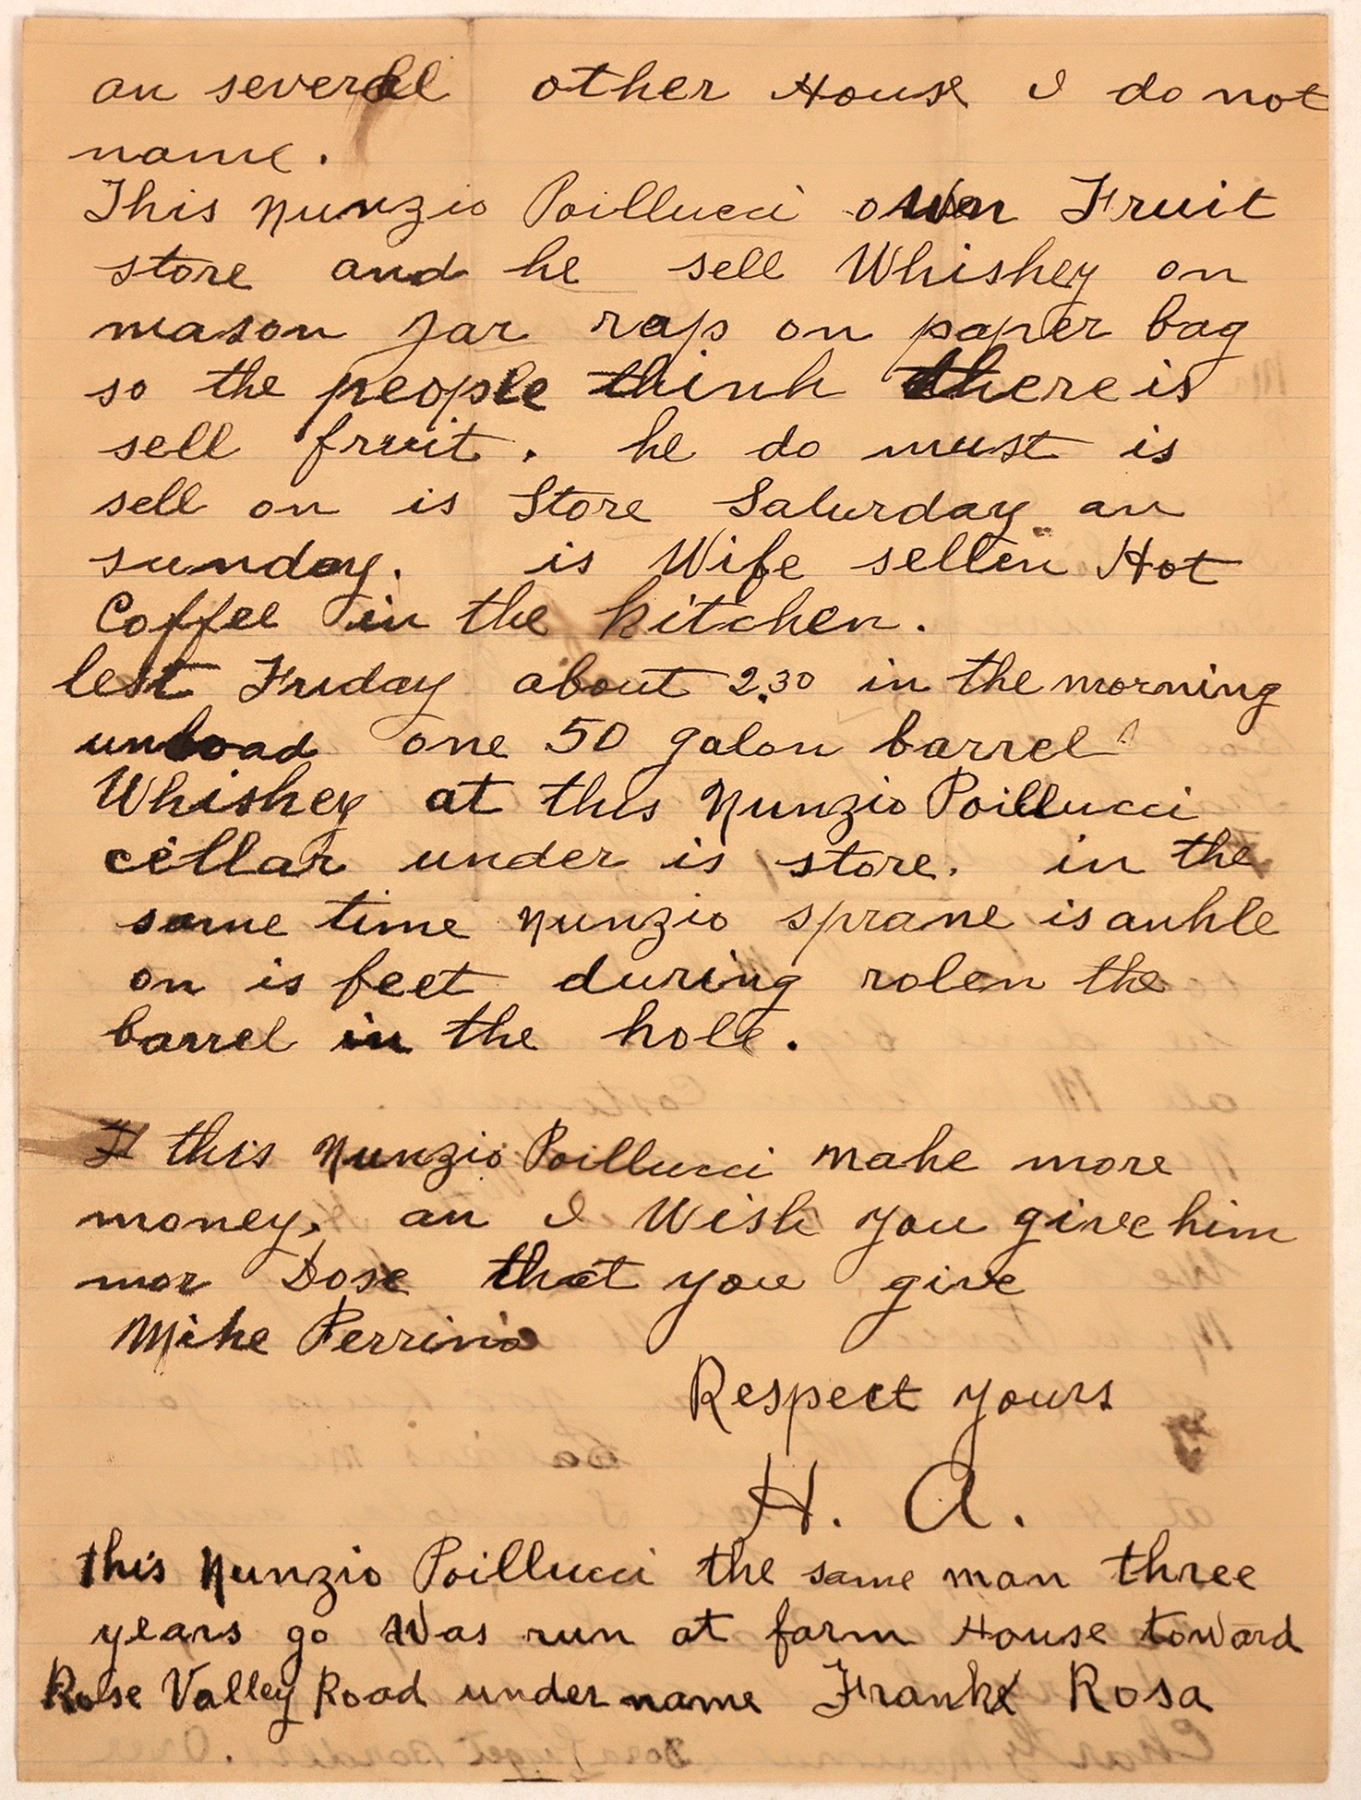 an several other House I do not
name.
This Nunzio Poillucci own Fruit
store and he sell Whiskey on
mason Jar rap on paper bag
so the people think there is
sell fruit. he do must is
sell on is Store Saturday an
sunday. is Wife sellen Hot
Coffee in the kitchen.
lest Friday about 2.30 in the morning
unload one 50 galon barrel
Whiskey at this Nunzio Poillucci
cellar under is store. in the
same time Nunzio sprane is ankle
on is feet during rolen the
barrel in the hole.
If this Nunzio Poillucci make more
money. an I Wish you give him
mor Dose that you give
Mike Perrino
Respect yours
H. A.
this Nunzio Poillucci the same man three
years go Was run at farm House toward
Rose Valley Road under name Frank Rosa